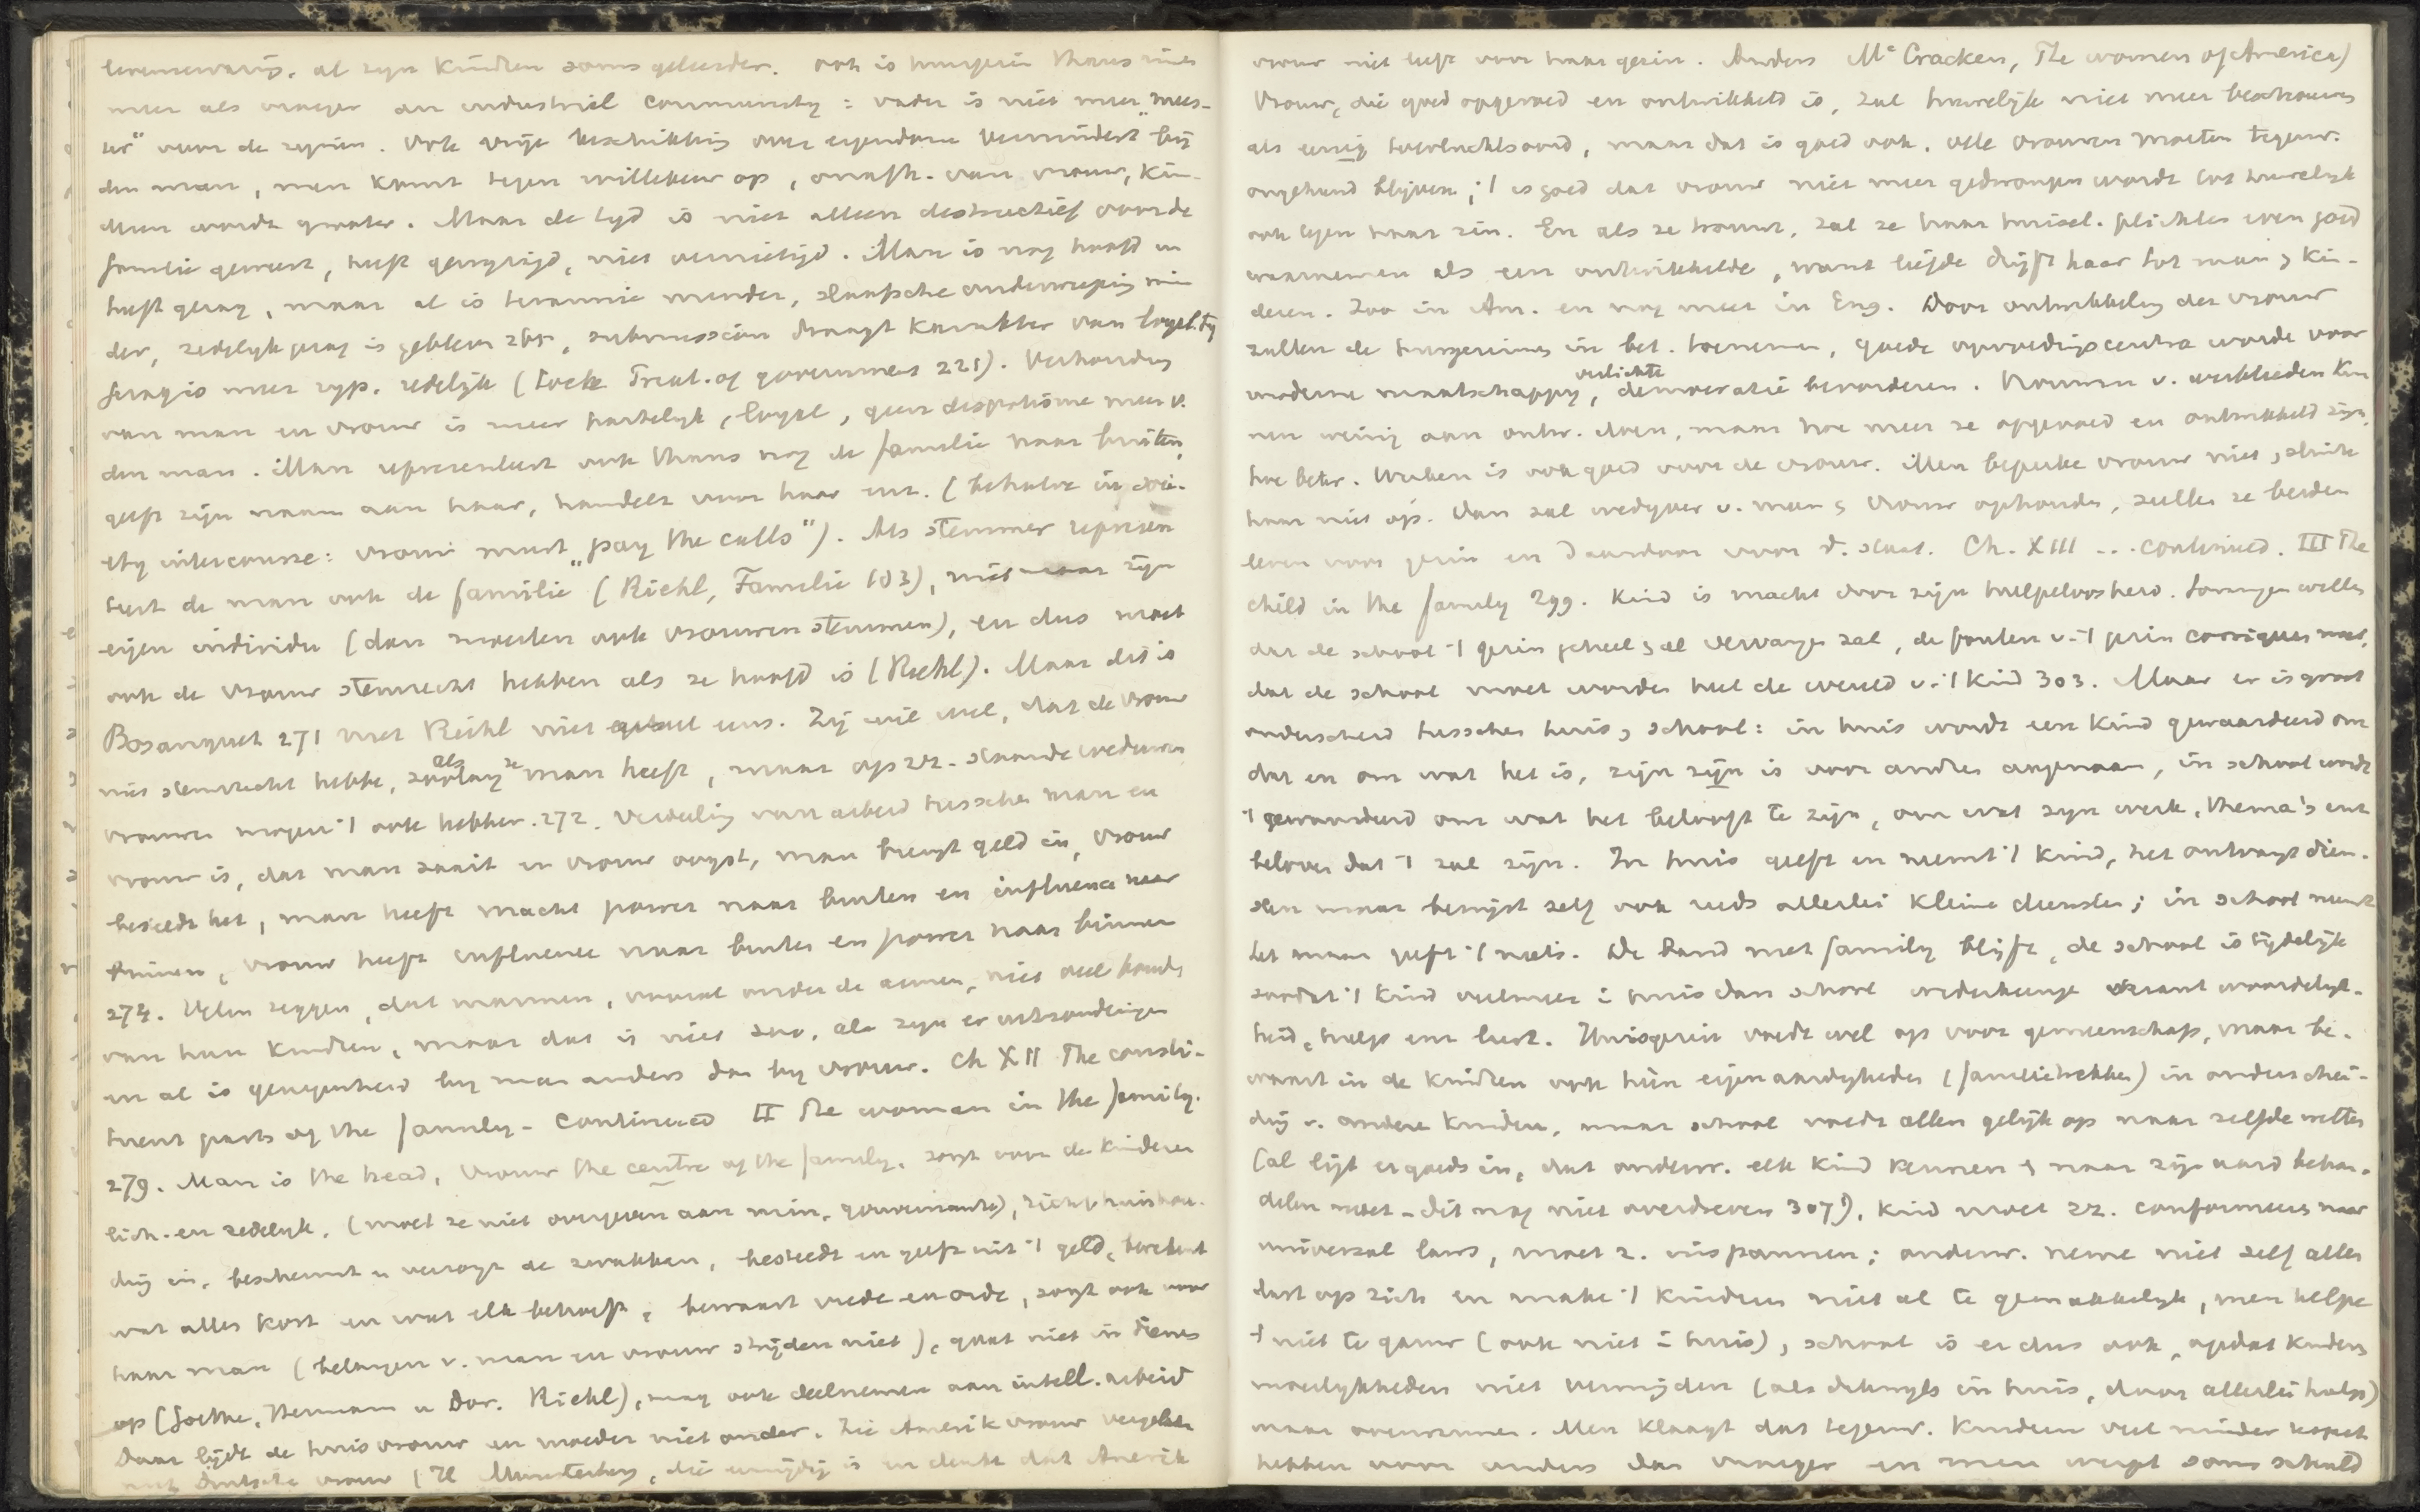 levenswarig. al zyn kindren soms geleerder. ook is huisgezin thans niet
meer als vroeger an industrial community : vader is niet meer "mees-
ter" over de zynen. Ook vrije beschikking over eigendom vermindert by
den man, men komt tegen willekeur op, onafh. van vrouw, kin-
dren wordt grooter. Maar de tyd is niet alleen destructief voor de
familie geweest, heeft gewyzigd, niet vernietigd. Man is nog hoofd en
heeft gezag, maar al is tirannie minder, slaafsche onderwerping min-
der, zedelyk gezag is gebleven 265, submission draagt karakter van loyality
gezag is meer zyp. redelyk (Locke Treat. of government 221). Verhouding
van man en vrouw is meer hartelyk, loyal, geen despotisme meer v.
den man. Man representeert ook thans nog de familie naar buiten,
geeft zijn naam aan haar, handelt voor haar enz. (behalve in soci-
ety intercourse: vrouw must "pay the calls"). Als stemmer represen
teert de man ook de familie (Riehl, Familie 103), niet maar zijn
eigen individu (dan moesten ook vrouwen stemmen), en dus moet
ook de vrouw stemrecht hebben als ze hoofd is (Riehl). Maar dit is
Bosanquet 271 met Riehl niet eens. Zij wil wel, dat de vrouw
niet stemrecht hebbe, als ze man heeft, maar op zz. staande weduwen
vrouwen mogen 't ook hebben. 272. Verdeeling van arbeid tusschen man en
vrouw is, dat man zaait en vrouw oogst, man brengt geld in, vrouw
besteedt het, man heeft macht power naar buiten en influence naar
binnen, vrouw heeft influence naar buiten en power naar binnen
274. Velen zeggen, dat mannen, vooral onder de armen, niet veel houden
van hun kindren, maar dat is niet zoo, al zyn er uitzonderingen
en al is genegenheid by man anders dan by vrouw. Ch XII The consti-
tuent parts of the family - continued II The woman in the family.
279. Man is the head, vrouw the centre of the family, zorgt voor de kinderen
lich. en zedelyk. (moet ze niet overgeven aan min, gouvernante), richt huishou-
ding in, beschermt en verzorgt de zwakken, besteedt en geeft uit 't geld, berekent
wat alles kost en wat elk behoeft, bewaart vrede en orde, zorgt ook voor
haar man (belangen v. man en vrouw strijden niet), gaat niet in dienen
op (Goethe, Herman u Dor. Riehl), mag ook deelnemen aan intell. arbeid
Daar lijdt de huisvrouw en moeder niet onder. Zie Amerik vrouw vergeleken
met Duitsche vrouw (H Munsterberg, die eenzijdig is en denkt dat Amerik
vrouw niet leeft voor haar gezin. Anders Mc Cracken, The women of America)
Vrouw, die goed opgevoed en ontwikkeld is, zal huwelijk niet meer beschouwen
als eenig toevluchtsoord, maar dat is goed ook. Vele vrouwen moeten tegenw.
ongehuwd blijven; 't is goed dat vrouw niet meer gedwongen wordt tot huwelijk
ook tegen haar zin. En als ze trouwt, zal ze haar huisel. plichten even goed
waarnemen als een ontwikkelde, want liefde drijft haar tot man & kin-
deren. Zoo in Am. en nog meer in Eng. Door ontwikkeling der vrouw
zullen de huisgezinnen in bet. toenemen, goede opvoedingscentra worden voor
moderne maatschappy, verlichte democratie bevorderen. Vrouwen v. werklieden kun
nen weinig aan ontw. doen, maar hoe meer ze opgevoed en ontwikkeld zijn,
hoe beter. Werken is ook goed voor de vrouw. Men beperke vrouw niet, sluite
haar niet op. Dan zal wedyver v. man & vrouw ophouden, zullen ze beiden
leven voor gezin en daardoor voor d. staat. Ch. XIII ... continued. III The
child in the family 299. Kind is macht door zijn hulpeloosheid. Sommigen willen
dat de school 't gezin geheel & al vervangen zal, de fouten v. 't gezin corrigeeren moet,
dat de school moet worden heel de wereld v. 't kind 303. Maar er is groot
onderscheid tusschen huis & school: in huis wordt een kind gewaardeerd om
dat en om wat het is, zijn zijn is voor andren aangenaam, in school wordt
't gewaardeerd om wat het belooft te zijn, om wat zyn werk, thema's enz
beloven dat 't zal zijn. In huis geeft en neemt 't kind, het ontvangt dien-
sten maar bewyst zelf ook reeds allerlei kleine diensten; in school neemt
het maar geeft 't niets. De band met family blijft, de school is tydelijk
zoodat 't kind veelmeer i huis dan school wederkeerige verantwoordelyk-
heid, hulp enz leert. Huisgezin voedt wel op voor gemeenschap, maar be-
waart in de kindren ook hun eigenaardigheden (familietrekken) in onderschei-
ding v. andere kindren, maar school voedt allen gelijk op naar zelfde wetten
(al ligt er goeds in, dat onderw. elk kind kennen & naar zijn aard behan-
delen moet - dit nog niet overdreven 307), kind moet zz. conformeeren naar
universal laws, moet z. inspannen; onderw. neme niet zelf alles
last op zich en make 't kindren niet al te gemakkelyk, men helpe
't niet te gauw (ook niet i huis), school is er dus ook, opdat kindren
moeilykheden niet vermijden (als dikwyls in huis, door allerlei hulp)
maar overwinnen. Men klaagt dat tegenw. kindren veel minder respect
hebben voor ouders dan vroeger en men werpt soms schuld